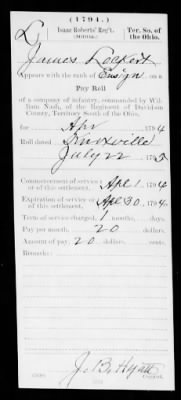 (1794.)
L Isaac Roberts' Reg't. Ter. So. of
(MILITIA.) the Ohio.
James Lockert
Appears with the rank of Ensign on a
Pay Roll
of a company of infantry, commanded by Wil-
liam Nash, of the Regiment of Davidson
County, Territory South of the Ohio,
for Apr 1794
Roll dated Knoxville
July 22 1795
Commencement of service or of this settlement. Apl 1 1794
Expiration of service or of this settlement. Apl 30 1794.
Term of service charged, 1 months, days.
Pay per month, 20 dollars.
Amount of pay, 20 dollars cents.
Remarks:
J. B. Hyatt
Copyist.